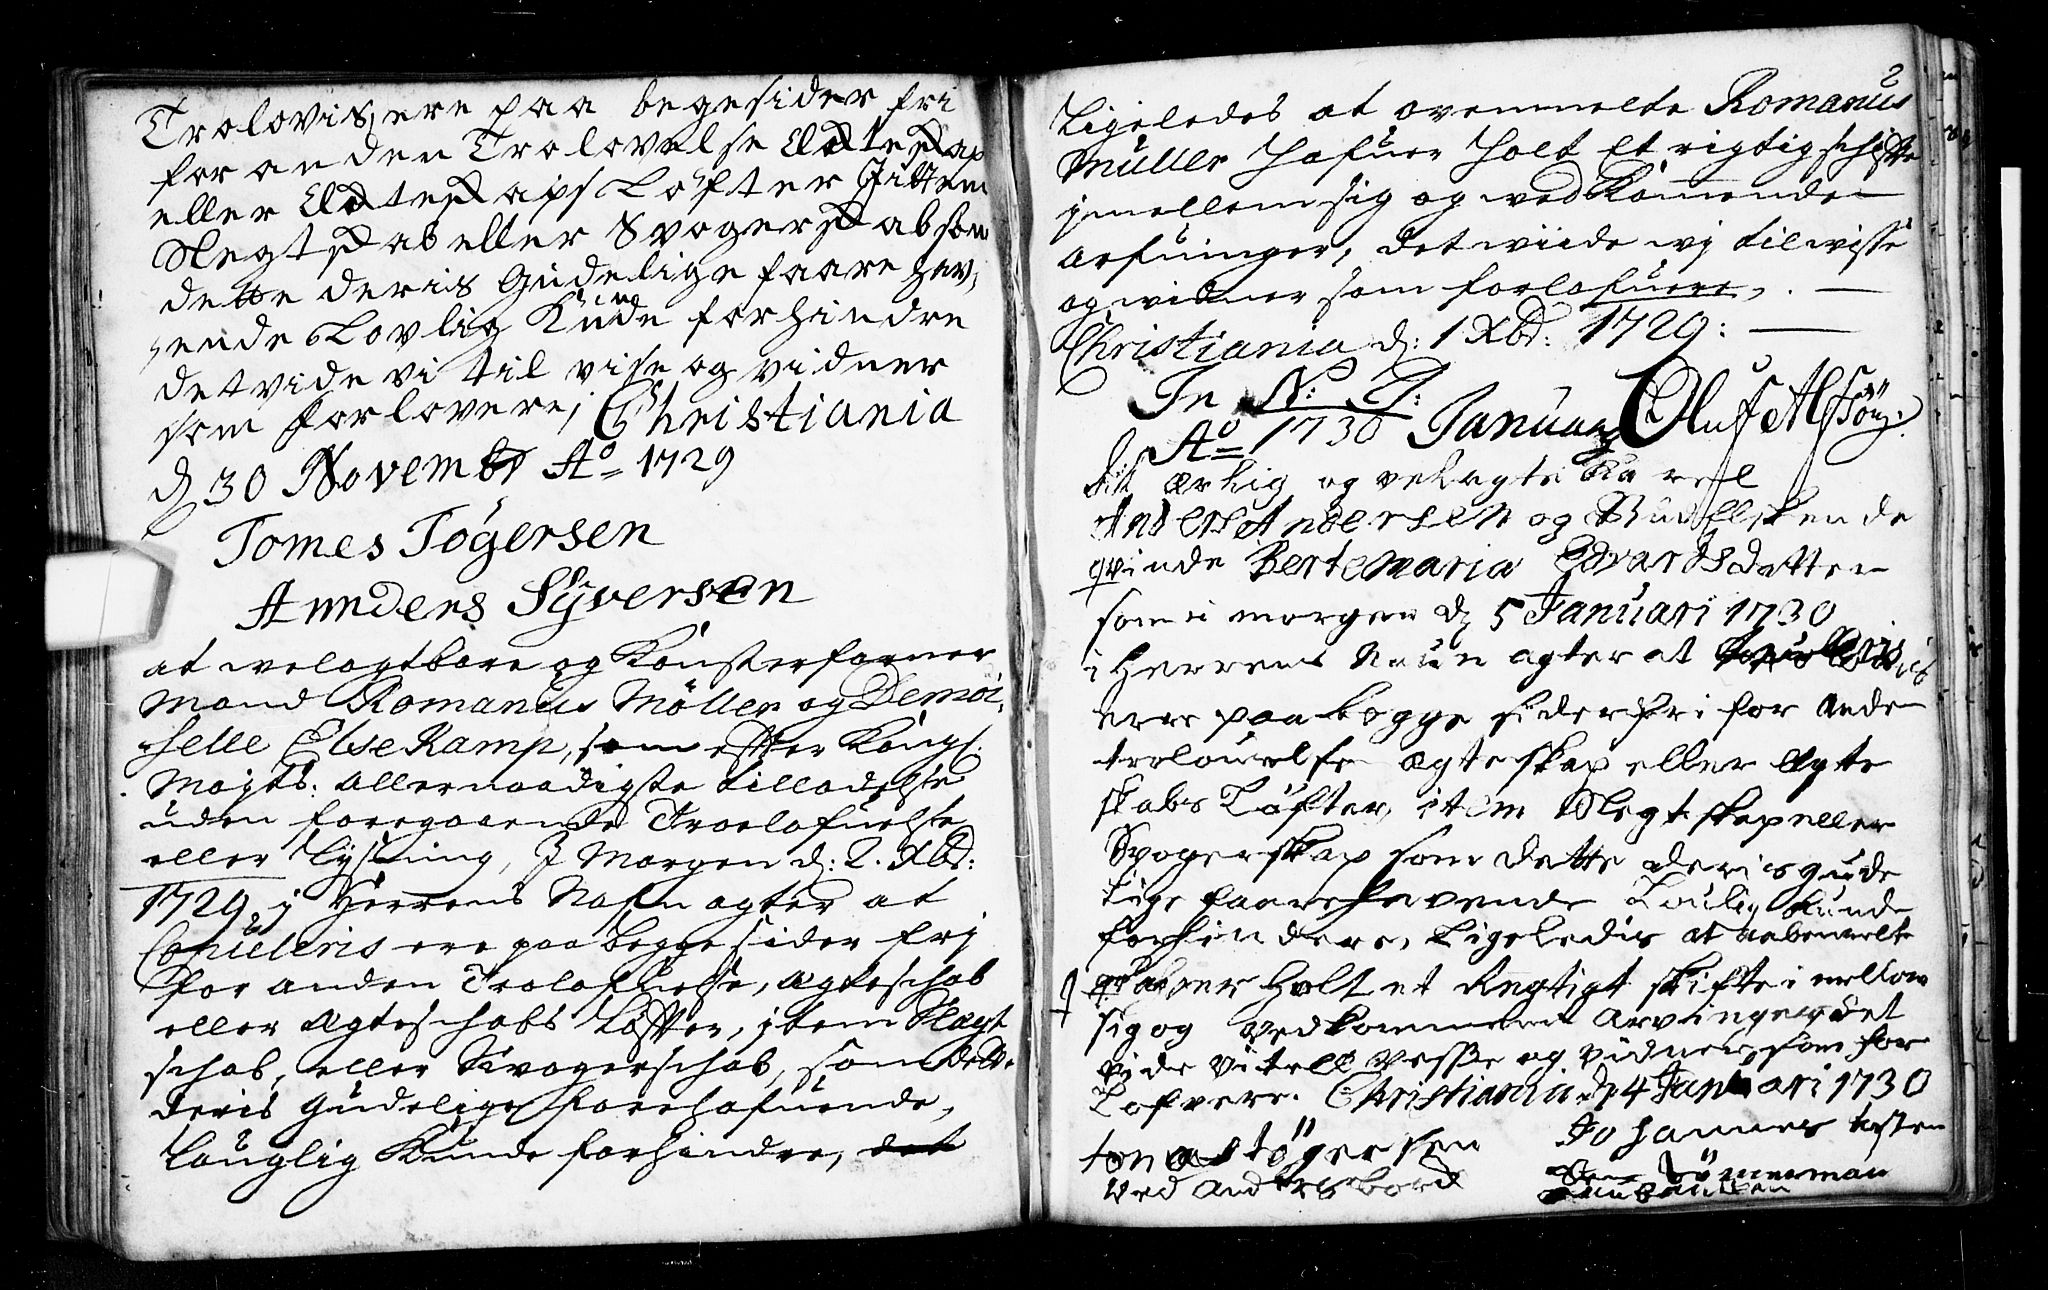 Trolovis, ere paa begesider fri
for anden Trolovelse Ecteskap
eller Ecteskaps Løfter Jttem
Slegtskab eller Svogerskab som
dette deris Gudelige faare hav¡
ende Lovlig Kunde forhindre
det vide vi til vise og vidner
som forlovere, Christiania
d 30 Novembr Ao 1729
Tomes Tögersen
Annders Syversen
at welagtbare og Konsterfarner
Mand Romanus Möller og Demoi,
selle Else Kamp, som efter Kongl:
Maÿts: allernaadigste tilladelse
uden foregaaende Troelofuelse
eller Lysning, J Morgen d: 2. Xbd:
1729 j Herrens Nafn agter at
Copuleris ere paa begge sider frj
for anden Trolofuelse, Agteschab
eller Agteschabs Løffter, jtem Slegt
schab, eller Swogerschab, som dette
deris Gudelige forehafuende,
Louglig Kunde forhindre, det
2
Ligeledes at ovenmelte Romanus
Müller Hafuer Holt Et rigtig schifte
jmellem sig og wedkommende
arfuinger, det wiide wj til wisse
og widner som forlofuere,
Christiania d: 1 Xbd: 1729:
Jn N: J: Oluf Alfsön:
Ao 1730 Januarÿ
ærlig og velagte Karel
Anders Andersen og Gudelskende
qvinde Bertemaria Edvardsdatter
som i morgen d 5 Januari 1730
i Herrens Naun agter at
erre paa begge sider fri for anden
trolouelse ægteskap eller Egte
skabs Löfter, item Slegtskap eller
Svogerskap som dette deris gude
lige faarehavende Loulig kunde
forhindere, Ligeledis at
haver Holt et Regtigt skifte i mellom
sig og vedkommen arvinger det
vide vi tell vesse og vidner som for
Lofvere. Christiania d 4 Januari 1730
tomas tögersen Johannes
Ved Anders bord Tömmerman